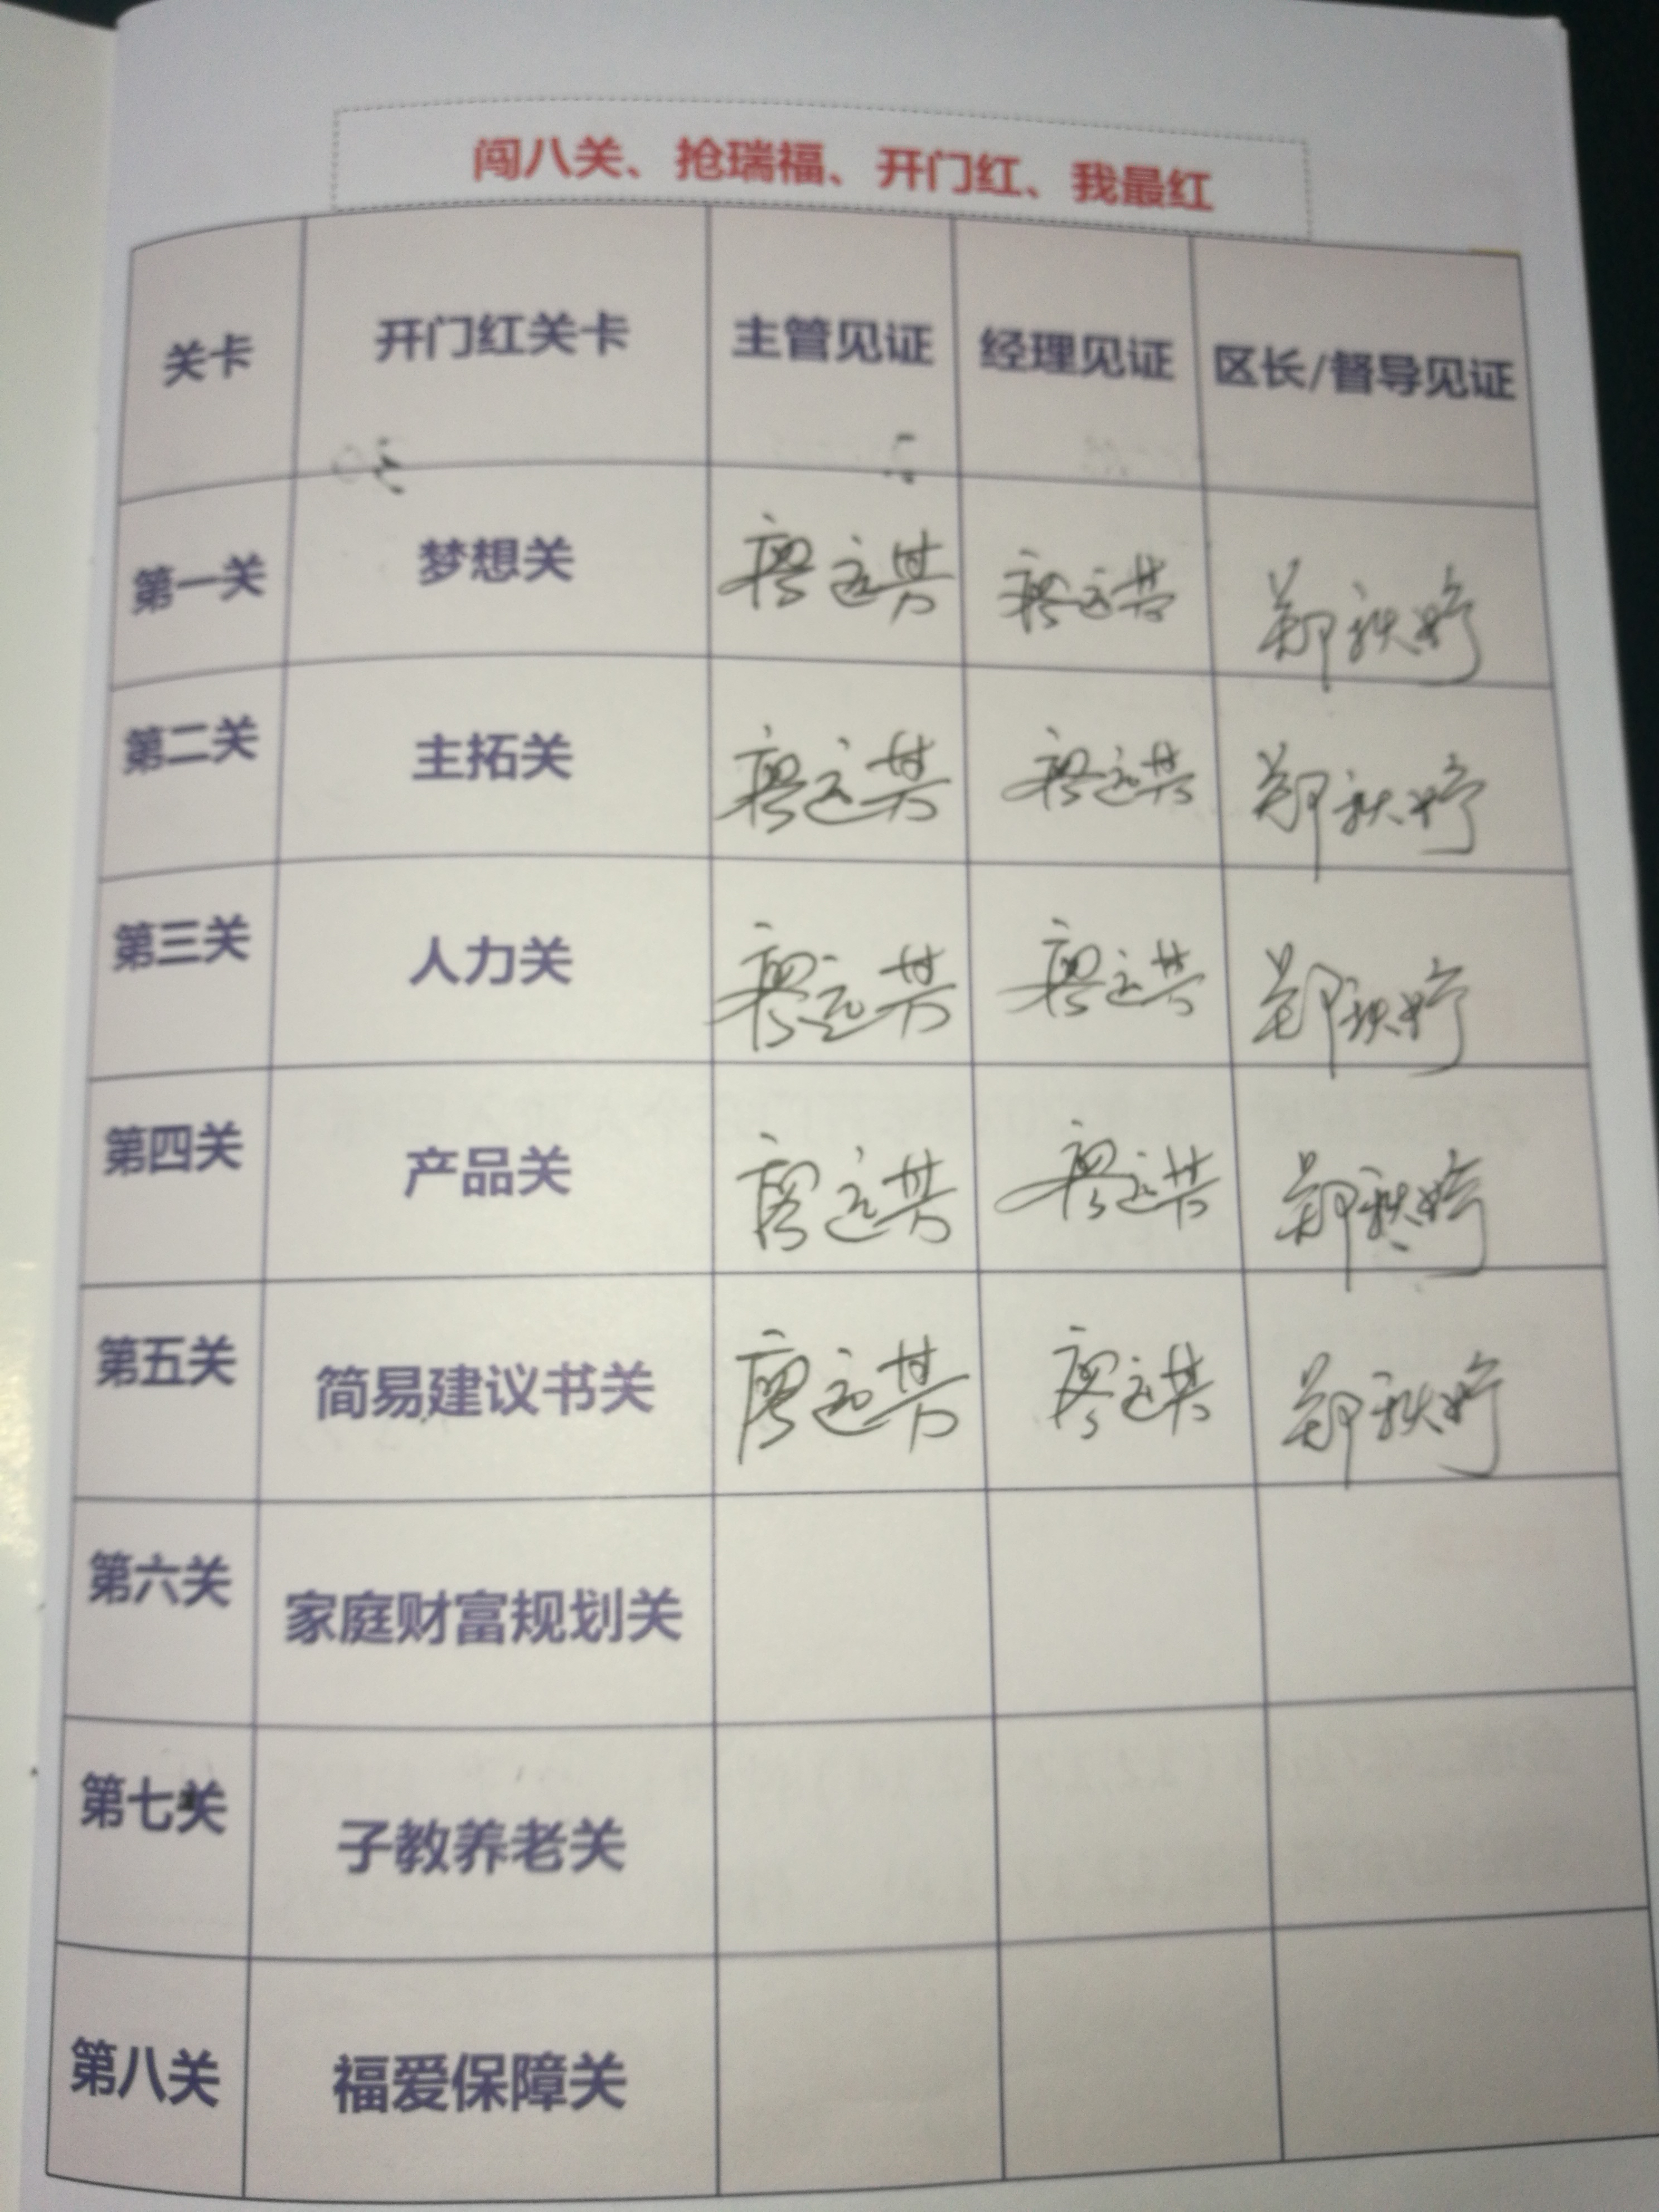 闯八关、抢瑞福、开门红、我最红
关卡 开门红关卡 主管见证 经理见证 区长/督导见证
第一关 梦想关 廖远芬 廖远芬 郑秋婷
第二关 主拓关 廖远芬 廖远芬 郑秋婷
第三关 人力关 廖远芬 廖远芬 郑秋婷
第四关 产品关 廖远芬 廖远芬 郑秋婷
第五关 简易建议书关 廖远芬 廖远芬 郑秋婷
第六关 家庭财富规划关
第七关 子教养老关
第八关 福爱保障关